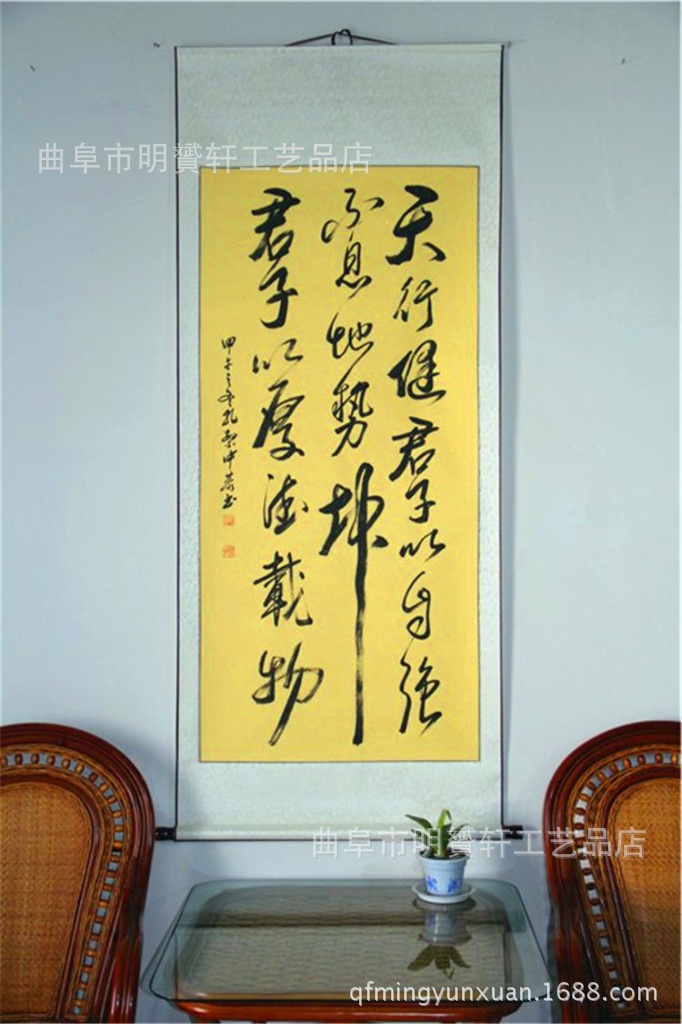 曲阜市明赟轩工艺品店
天行健君子以自强
不息地势坤
君子以厚德载物
甲午之冬孔
曲阜市明赟轩工艺品店
qfmingyunxuan.1688.com